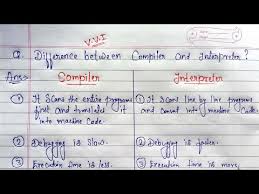 V.V.I
Q. Difference between Compiler and Interpreter?
Ans:- Compiler Interpreter
① It Scans the entire programs first and transfert it into machine Code.
① It Scans line by line programs and convert into machine Code.
② Debugging is Slow. ② Debugging is faster.
③ Execution time is less. ③ Execution time is more.